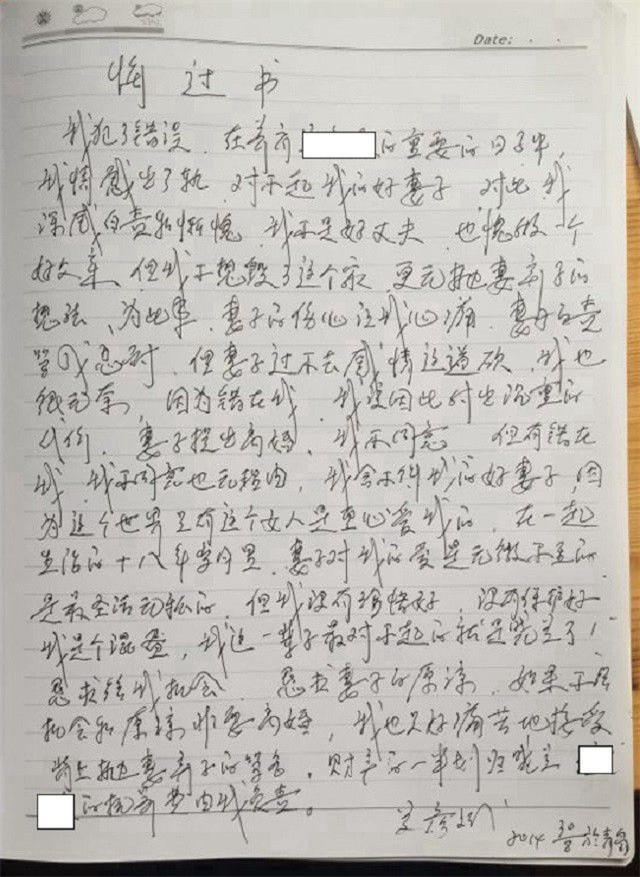 Date:
悔过书
我犯了错误，在养育██的重要的日子里，
我情感出了轨，对不起我的好妻子，对此我
深感自责和惭愧，我不是好丈夫，也愧做一个
好父亲，但我不想毁了这个家，更无抛妻弃子的
想法，为此事，妻子的伤心让我心痛，妻子的责
骂我忍耐，但妻子过不去感情这道砍，我也
很无奈，因为错在我，我要因此付出沉重的
代价，妻子提出离婚，我不同意，但有错在
我，我不同意也无理由，我舍不得我的好妻子，因
为这个世界只有这个女人是真心爱我的，在一起
生活的十八年岁月里，妻子对我的爱是无微不至的
是最圣洁无私的，但我没有珍惜好，没有保护好
我是个混蛋，我这一辈子最对不起的就是
恳求给我机会，恳求妻子的原谅，如果不给
机会和原谅非要离婚，我也只好痛苦地接受
背上抛妻弃子的骂名，财产的一半划归
的抚养费由我负责。
2014